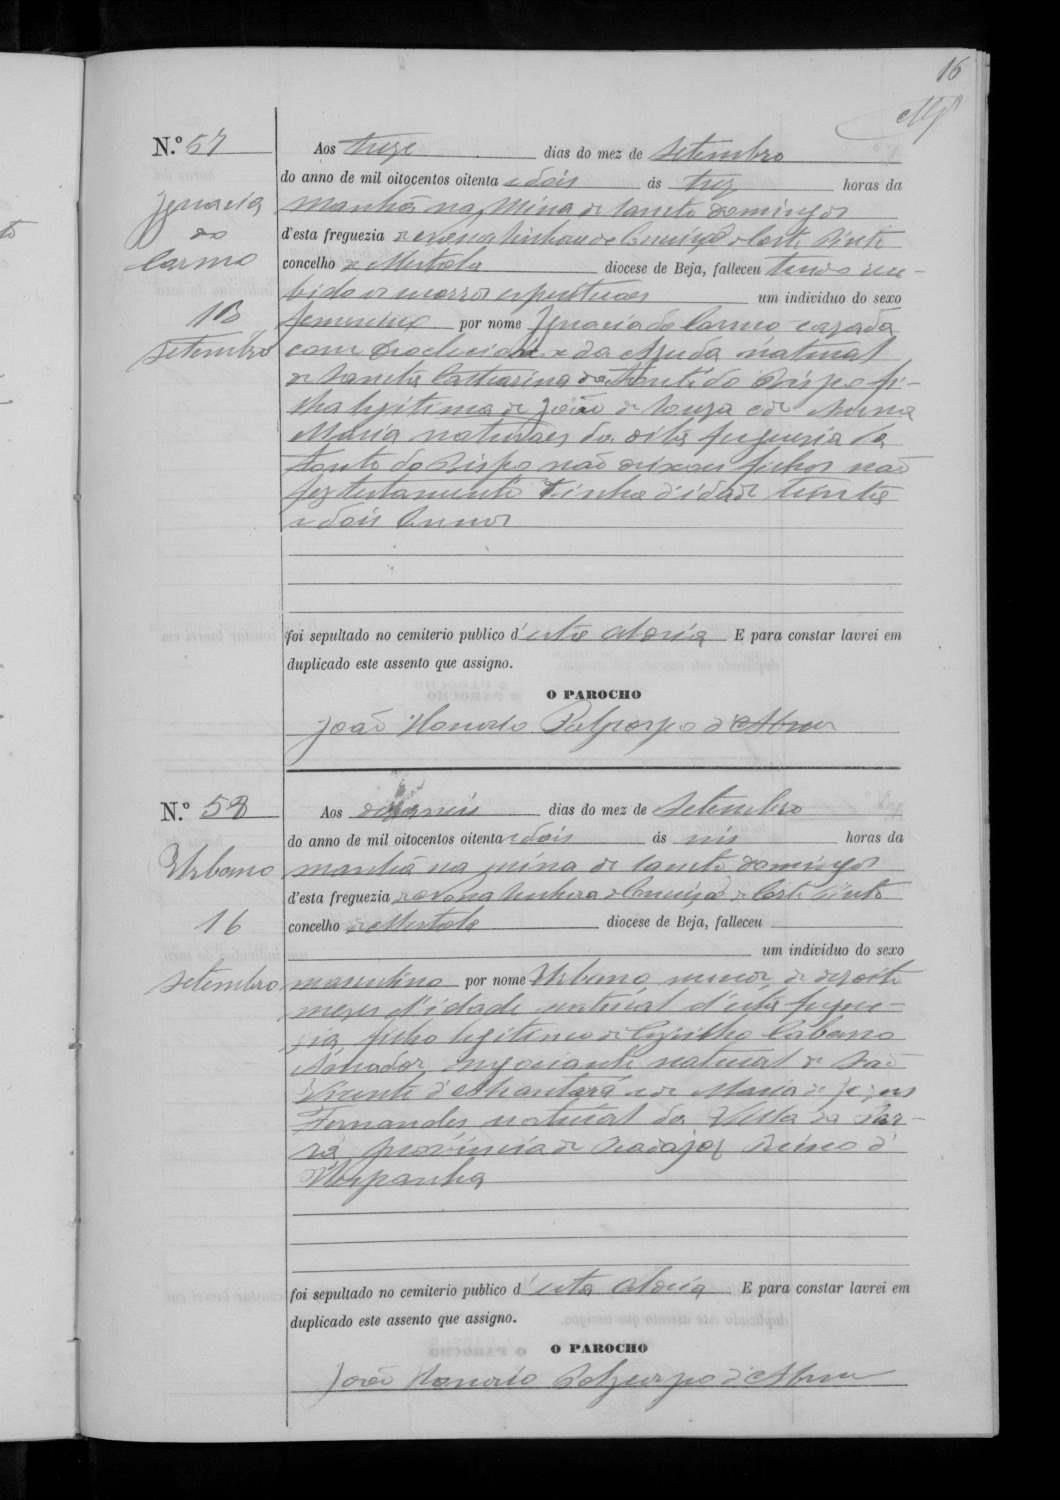 16
N.º 57
Ignacia
do
Carmo
13
Setembro
Aos treze dias do mez de Setembro
do anno de mil oitocentos oitenta e dois ás trez horas da
manhã na Mina de Sancto Domingos
d'esta freguezia de Corte Pinto
concelho de Mertola diocese de Beja, falleceu tendo rece-
bido os socorros espirituaes um individuo do sexo
femenino por nome Ignacia do Carmo cazada
com da Ajuda natural
de Sancta Catharina da Fonte do Bispo fi-
lha legitima de João de Souza e de Anna
Maria naturaes da dita freguezia da
Fonte do Bispo não deixou filhos não
fez testamento tinha d'idade trinta
e dois annos
foi sepultado no cemiterio publico d'esta aldeia E para constar lavrei em
duplicado este assento que assigno.
O PAROCHO
João Honorio d'Abreu
N.º 58
Urbano
16
Setembro
Aos dezaseis dias do mez de Setembro
do anno de mil oitocentos oitenta e dois ás seis horas da
manhã na mina de Sancto Domingos
d'esta freguezia de Corte Pinto
concelho de Mertola diocese de Beja, falleceu
um individuo do sexo
masculino por nome Urbano, menor de dezoito
mezes d'idade natural d'esta fregue-
zia, filho legitimo de Cabano
negociante natural de São
Vicente d'Alcantara e de Maria de Jezus
Fernandes natural da Villa da Par-
ra, provincia de Badajoz Reino d'
Hespanha
foi sepultado no cemiterio publico d'esta aldeia E para constar lavrei em
duplicado este assento que assigno.
O PAROCHO
João Honorio d'Abreu